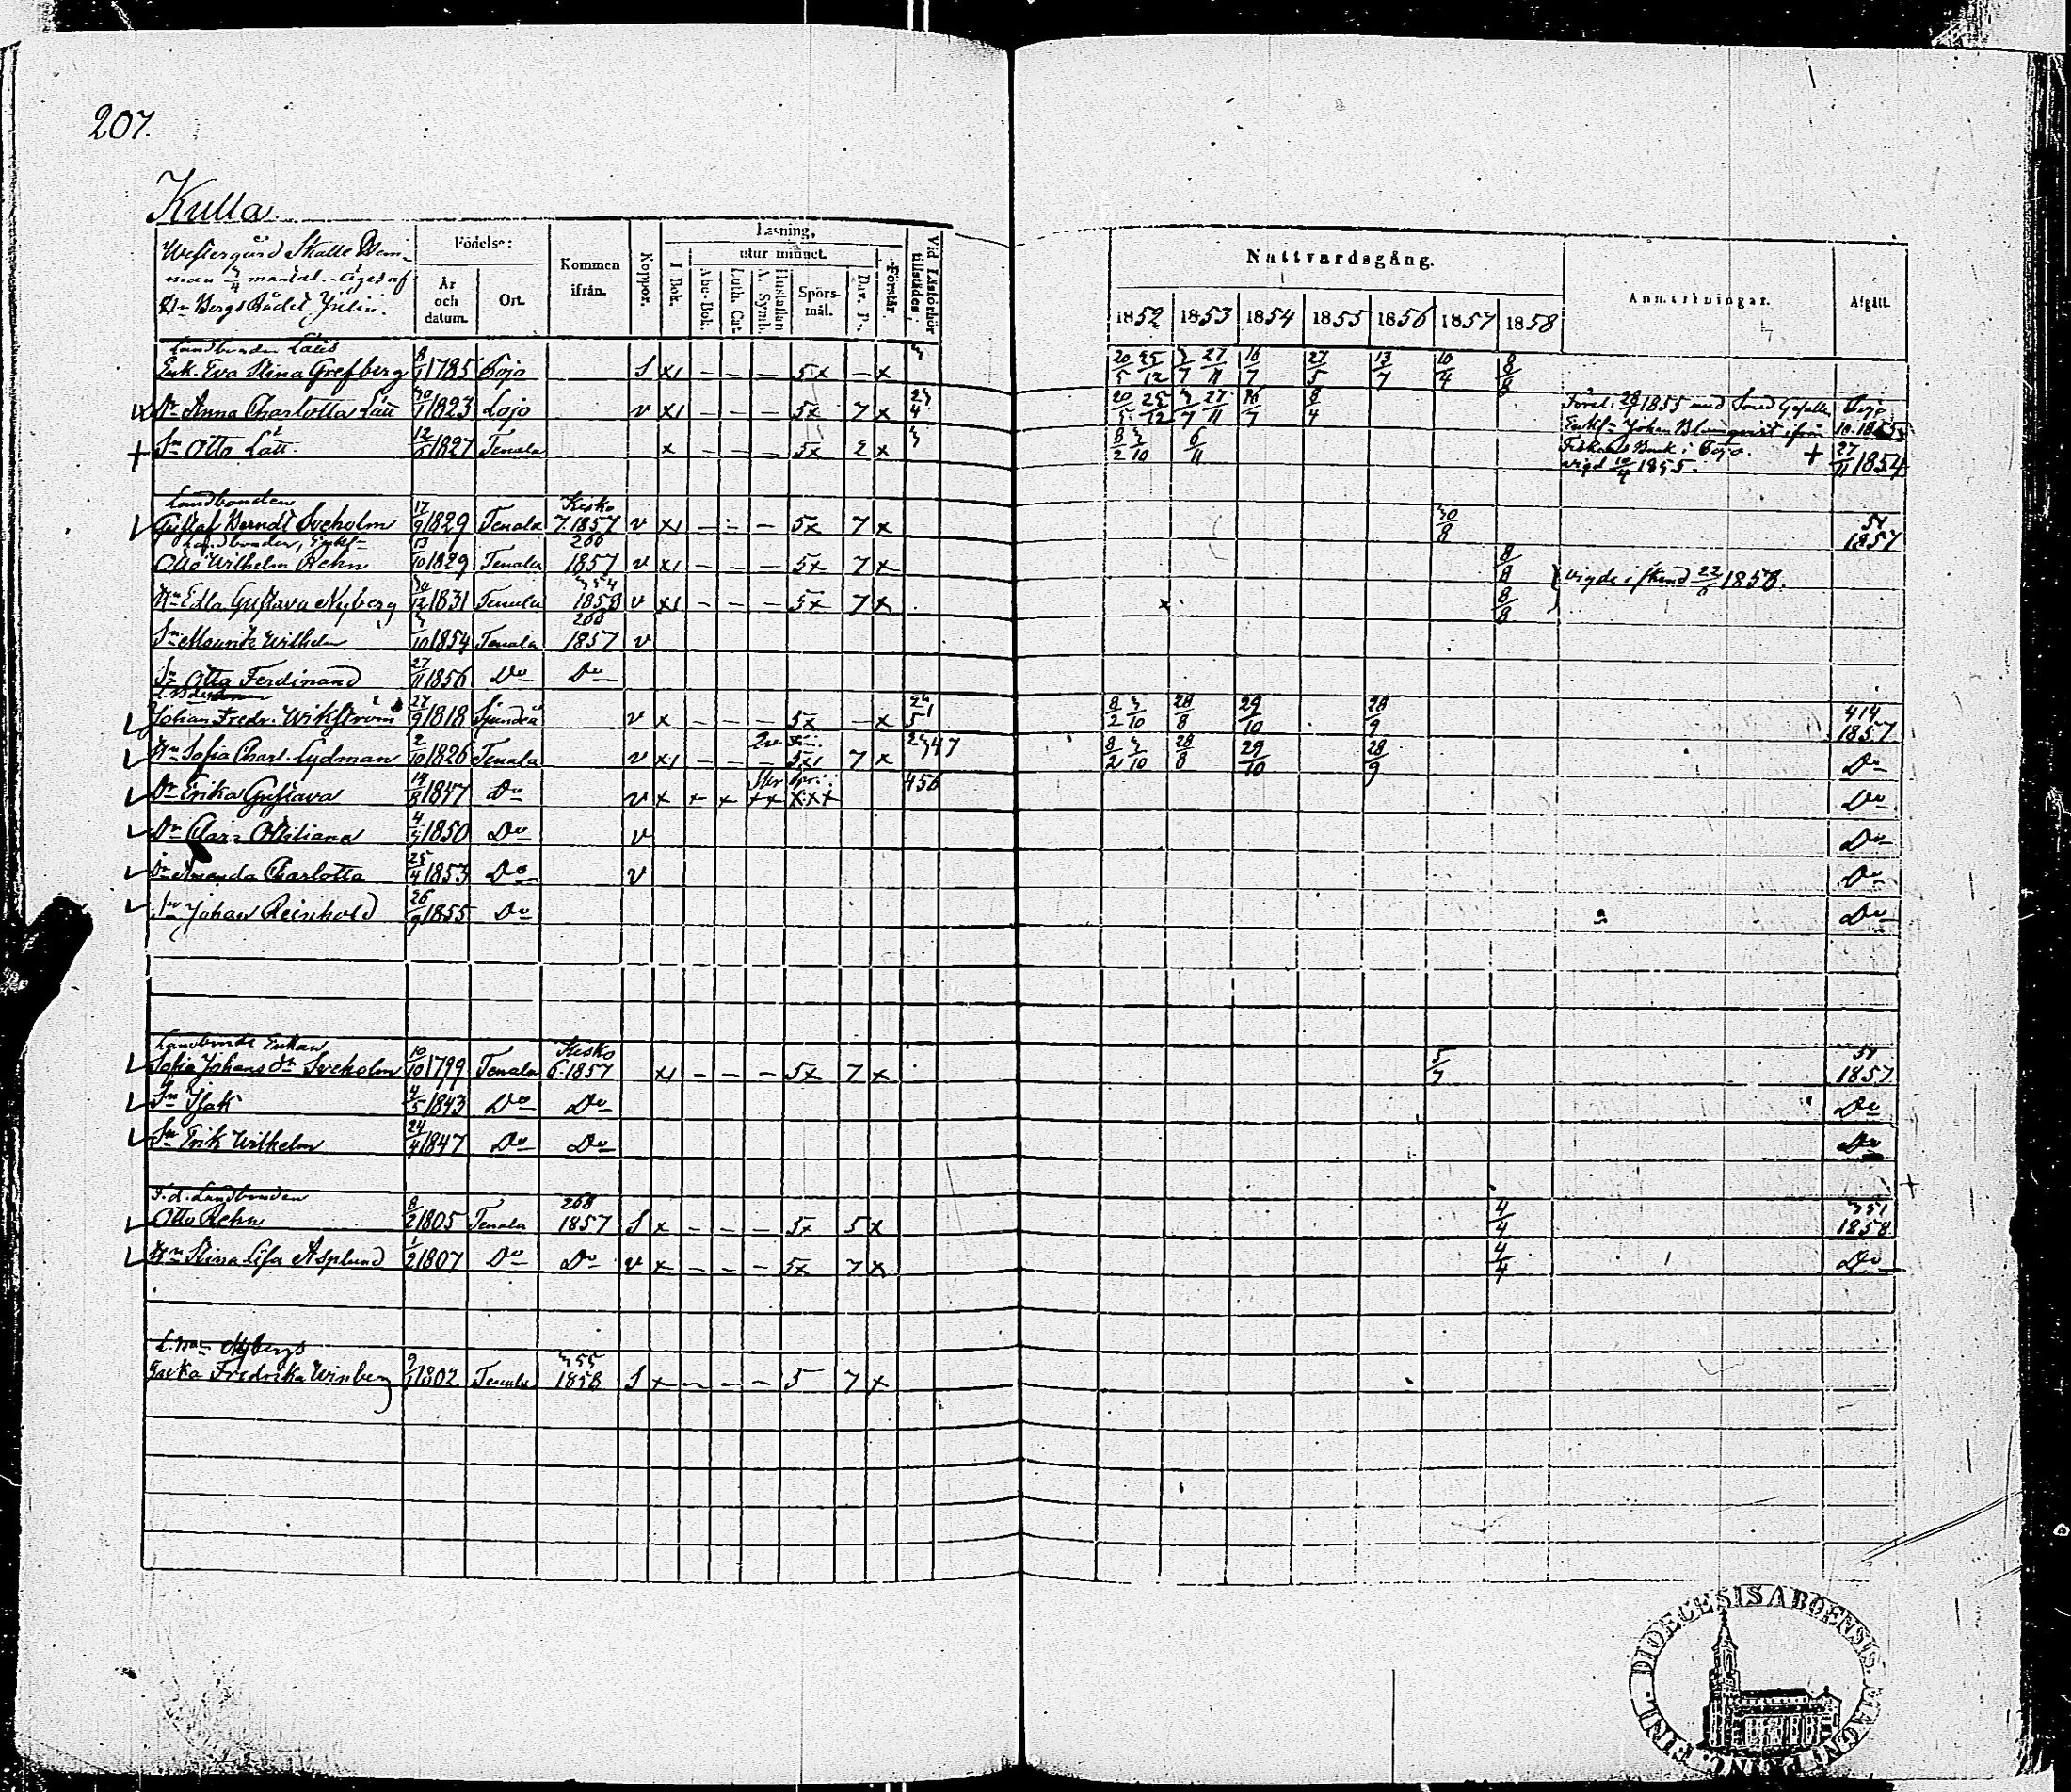 207.
Kulla
Westergård Skatte Hem-
man 3/4 mantal. Äges af
Hr BergsRådet Julin.
Födelse:
År och datum.
Ort.
Kommen ifrån.
Koppor.
Läsning,
utur minnet.
I Bok.
Abc-Bok.
Luth. Cat.
Hustaflan A. Symb.
Spörs-mål.
Dav. Ps.
Förstår.
Vid Läsförhör tillstädes.
Nattvardsgång.
1852 1853 1854 1855 1856 1857 1858
Anmärkningar.
Afgått.
Landbonden Lätts
Enk. Eva Stina Grefberg 8/1 1785 Pojo S x1 - - - 5x - x 3 20/5 25/12 3/7 27/11 16/7 27/5 13/7 10/4 8/8
Dr Anna Charlotta Lätt 30/1 1823 Lojo v x1 - - - 5x 7 x 23 4 20/5 25/12 3/7 27/11 16/7 8/4 Förel. 28/1 1855 med Smed Gesällen Pojo
Enkl. Johan Blomqvist ifrån 10.1855
Sn Otto Lätt 12/6 1827 Tenala x - - - 5x 2 x 3 8/2 3/10 6/11 Fiskars Bruk i Pojo. + 27/11 1854
vigd 10/4 1855.
Landbonden Kisko
Gustaf Berndt Sveholm 17/9 1829 Tenala 7.1857 v x1 - - - 5x 7 x 30/8 51 1857
Landbonden, Enkl. 266
Otto Wilhelm Rehn 13/10 1829 Tenala 1857 v x1 - - - 5x 7 x 8/8 vigde i stånd 22/6 1858.
Hu Edla Gustava Nyberg 30/12 1831 Tenala 354 1858 v x1 - - - 5x 7 x 8/8
Sn Mauritz Wilhelm 3/10 1854 Tenala 266 1857 v
Sn Otto Ferdinand 27/11 1856 Do Do
Johan Fredr. Wikström 27/9 1818 Sjundeå v x - - - 5x - x 8/2 3/10 28/8 29/10 28/9 414 1857
Hu Sofia Charl. Lydman 2/10 1826 Tenala v x1 - - - 5x1 7 x 2347 8/2 3/10 28/8 29/10 28/9 Do
Dr Erika Gustava 14/8 1847 Do v x x x xx xxx 456 Do
Dr Clara Ottiliana 4/4 1850 Do v Do
Dr Amanda Charlotta 25/4 1853 Do v Do
Sn Johan Reinhold 26/9 1855 Do Do
Landbonde Enkan Kisko
Sofia Johans dr Sveholm 10/10 1799 Tenala 6.1857 x1 - - - 5x 7 x 5/7 51 1857
Sn Isak 4/5 1843 Do Do Do
Sn Erik Wilhelm 24/4 1847 Do Do Do
F.d. Landbonden 268
Otto Rehn 8/2 1805 Tenala 1857 S x - - - 5x 5 x 4/4 351 1858
Hu Stina Lisa Asplund 1/2 1807 Do Do v x - - - 5x 7 x 4/4 Do
Nybergs 355
Enka Fredrika Winberg 9/1 1802 Tenala 1858 S x - - - 5 7 x
DIOECESIS ABOENSIS. MAGNI PRINC. FINL.